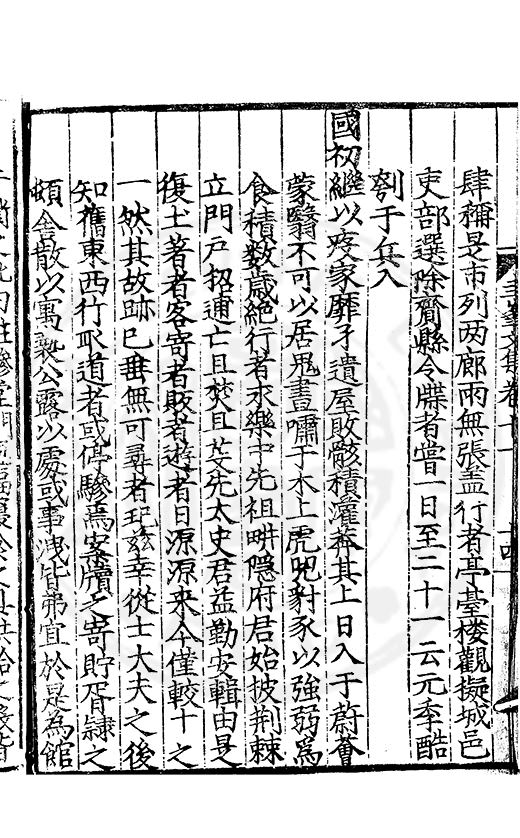 肆稱是市列两廊雨無張盖行者亭臺樓觀擬城邑
吏部選除
縣令牒者嘗一日至二十一云元季酷
刳于兵入
國初繼以疫家靡孑遺屋敗骸積灌莽其上日入于蔚薈
蒙翳不可以居鬼晝嘯于木上虎兕豺豕以強弱爲
食積數歲絕行者永樂中先祖畊隐府君始披荆棘
立門户招逋亡且焚且芟先太史君益勤安輯由是
復土著者客寄者販者遊者日源源來今僅較十之
一然其故跡已無可尋者玭兹幸從士大夫之後
知舊東西行取道者或停驂焉案牘之寄貯胥隸之
頓舍散以寓褻公露以處或事洩皆弗宜於是為館